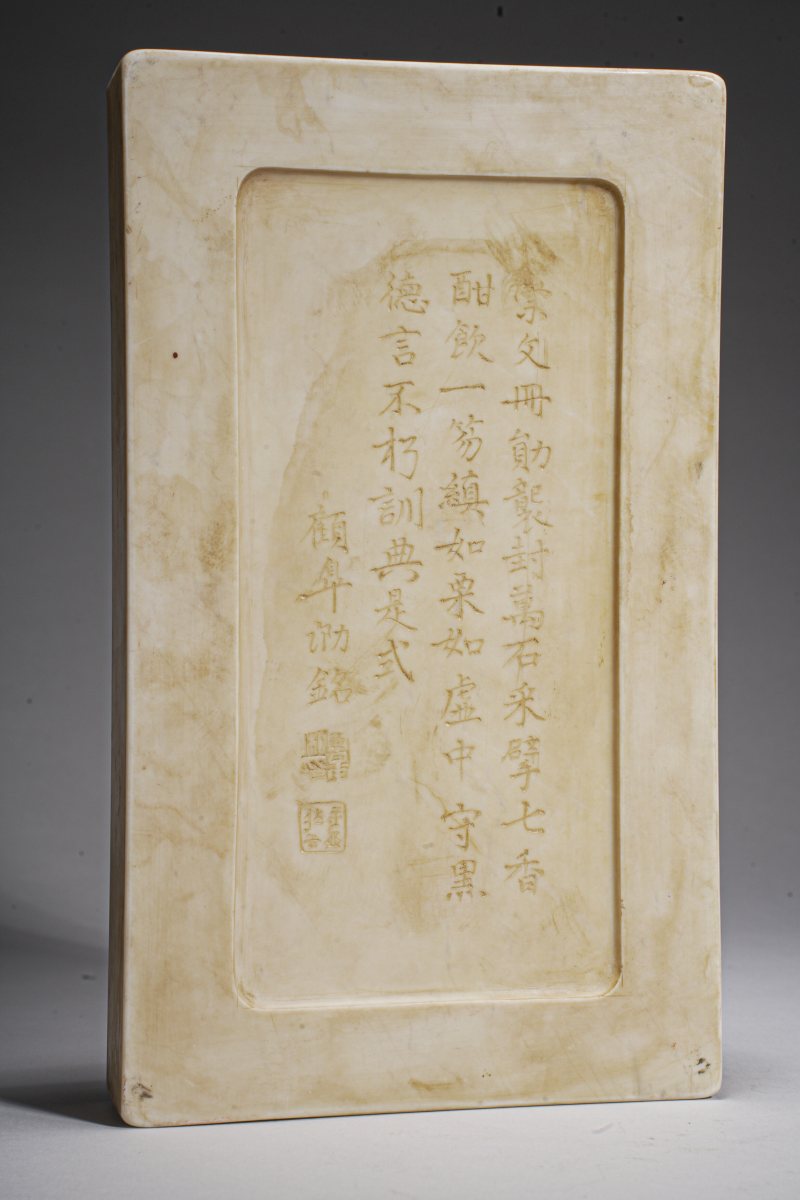 文冊勛襲封萬石采擘七香
酣飲一笏縝如栗如虛中守黑
德言不朽訓典是式
顧皋泐銘